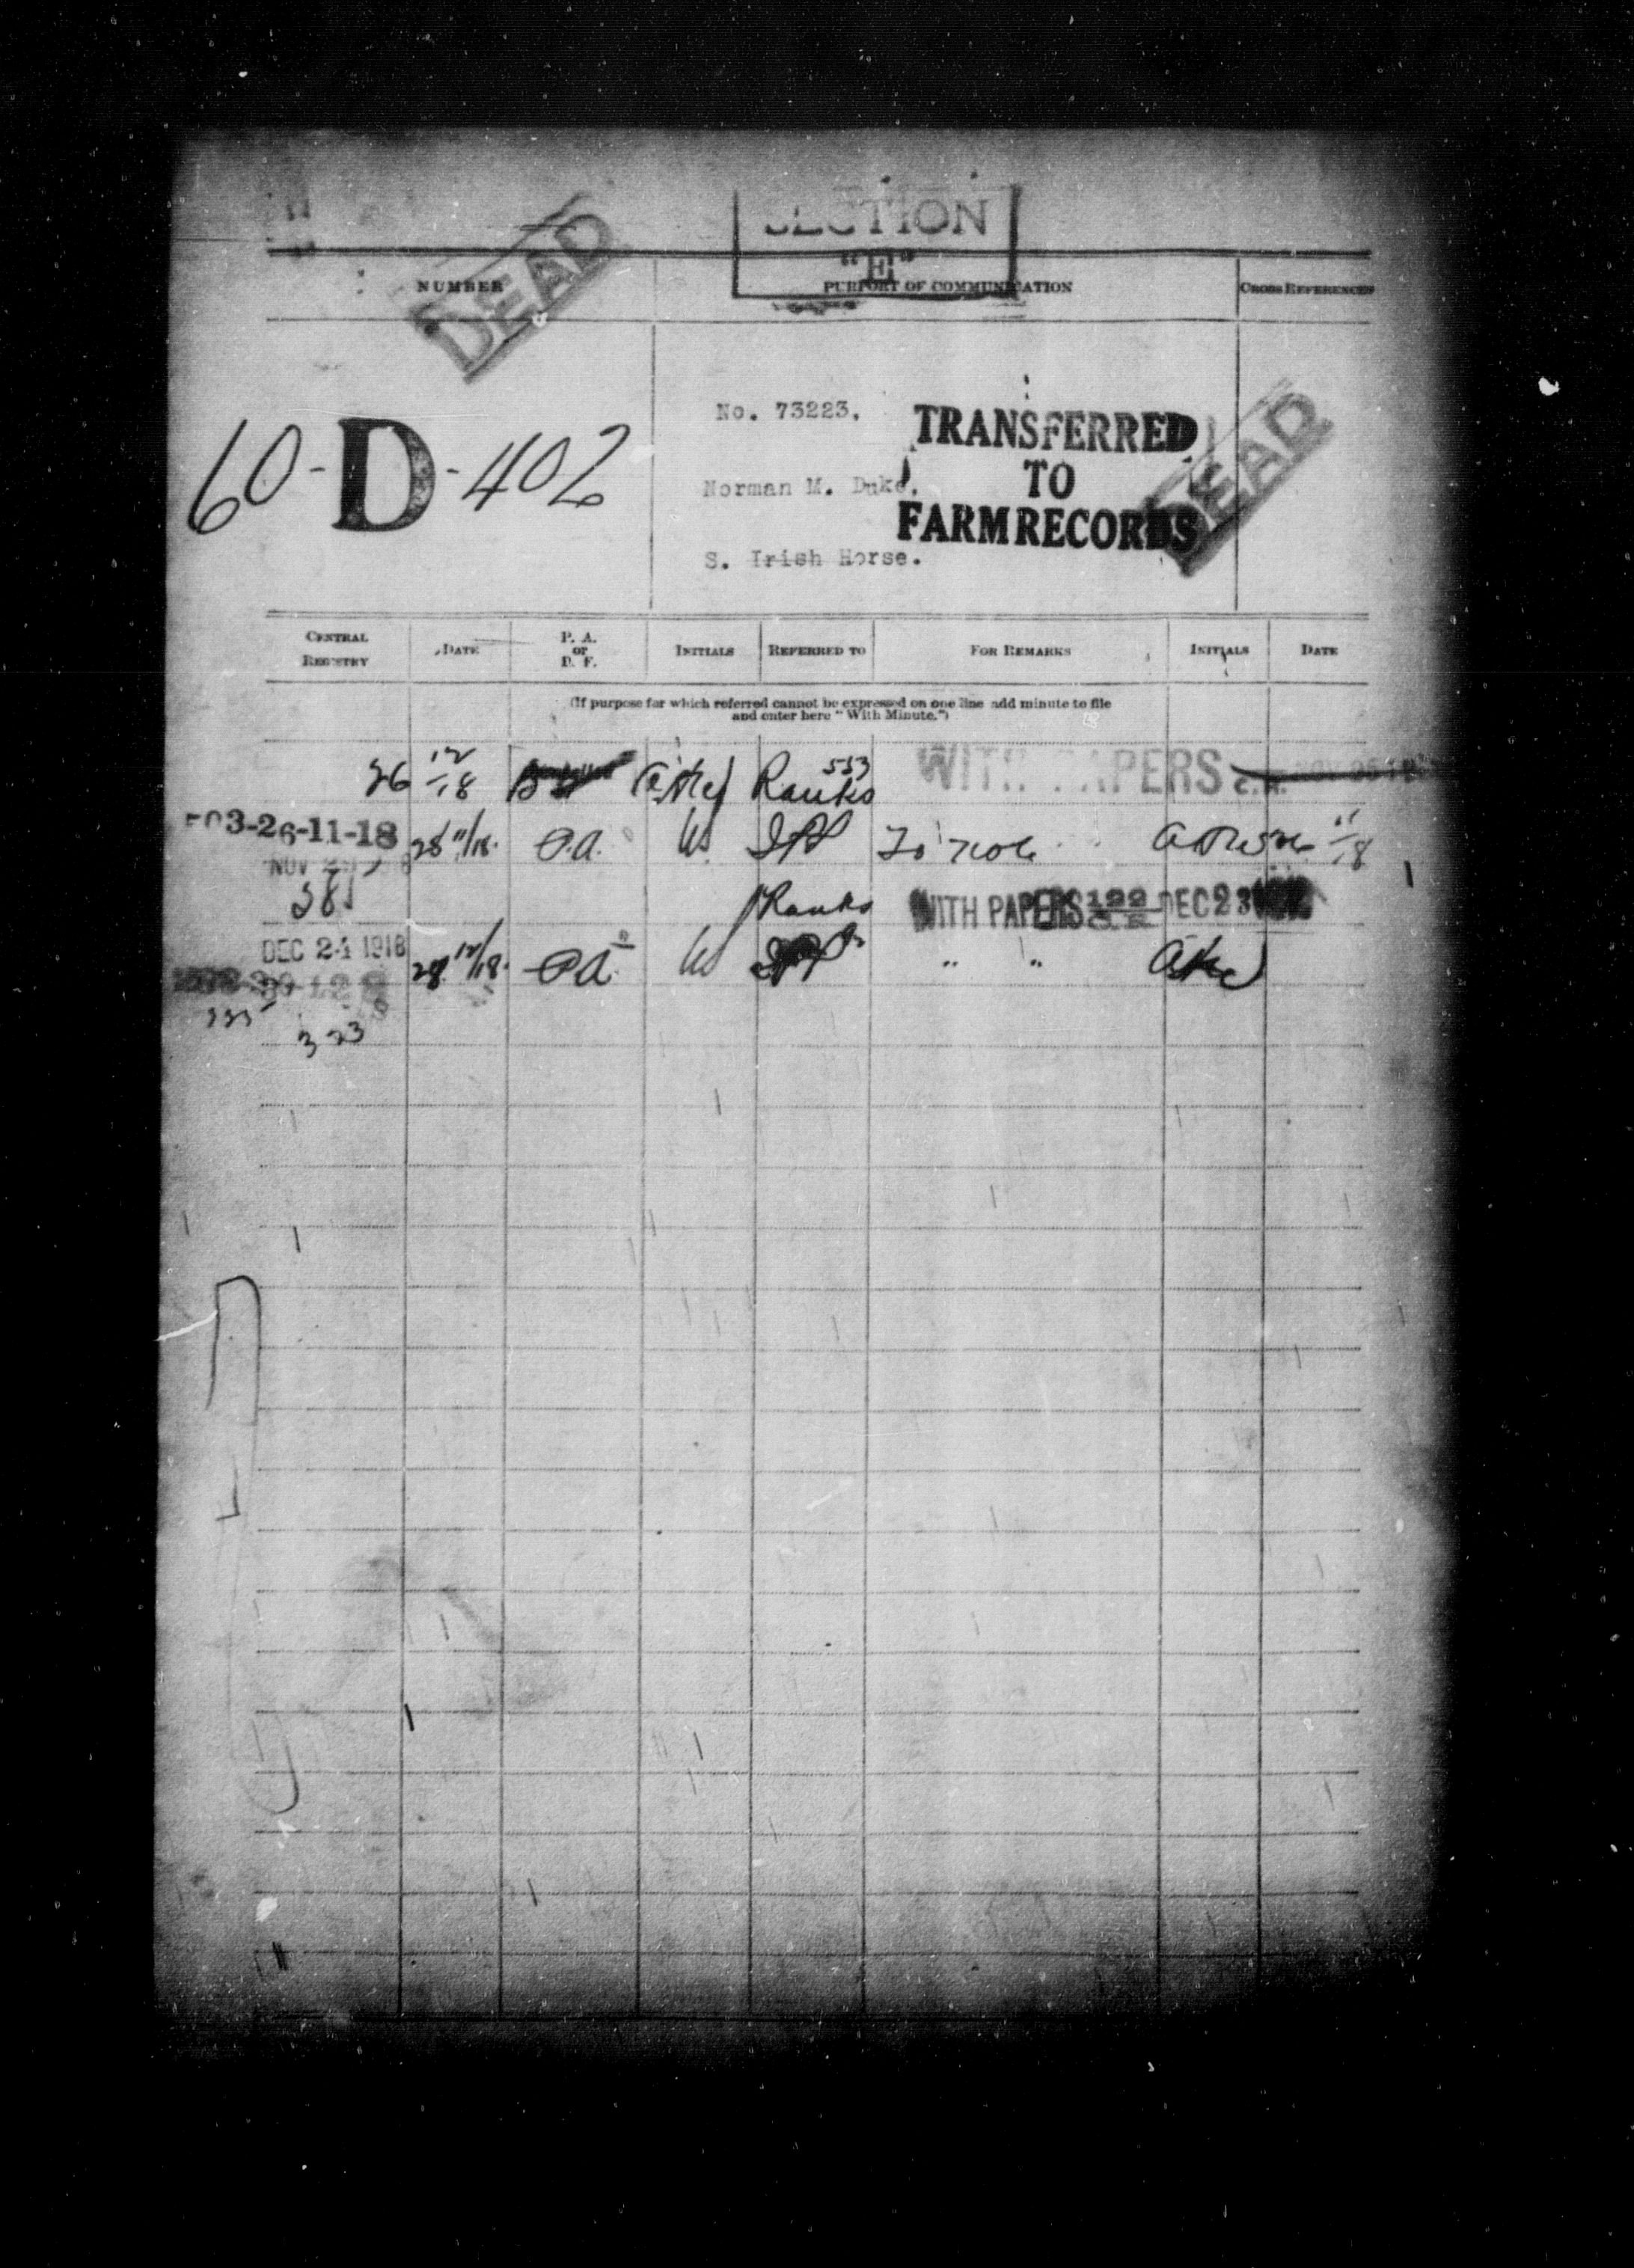 SECTION
"E"
DEAD
NUMBER
PURPORT OF COMMUNICATION
CROSS REFERENCES
60-D-402
No. 73223.
Norman M. Duke,
S. Irish Horse.
TRANSFERRED
TO
FARM RECORDS
DEAD
CENTRAL REGISTRY
DATE
P. A. or D. F.
INITIALS
REFERRED TO
FOR REMARKS
INITIALS
DATE
(If purpose for which referred cannot be expressed on one line add minute to file
and enter here "With Minute.")
26 12/18 Ranks 553 WITH PAPERS C.R.
3-26-11-18 28 11/18. P.A. To note 11/18
381
Ranks WITH PAPERS 122 DEC 23
DEC 24 1918
28 12/18. P.A. " "
323